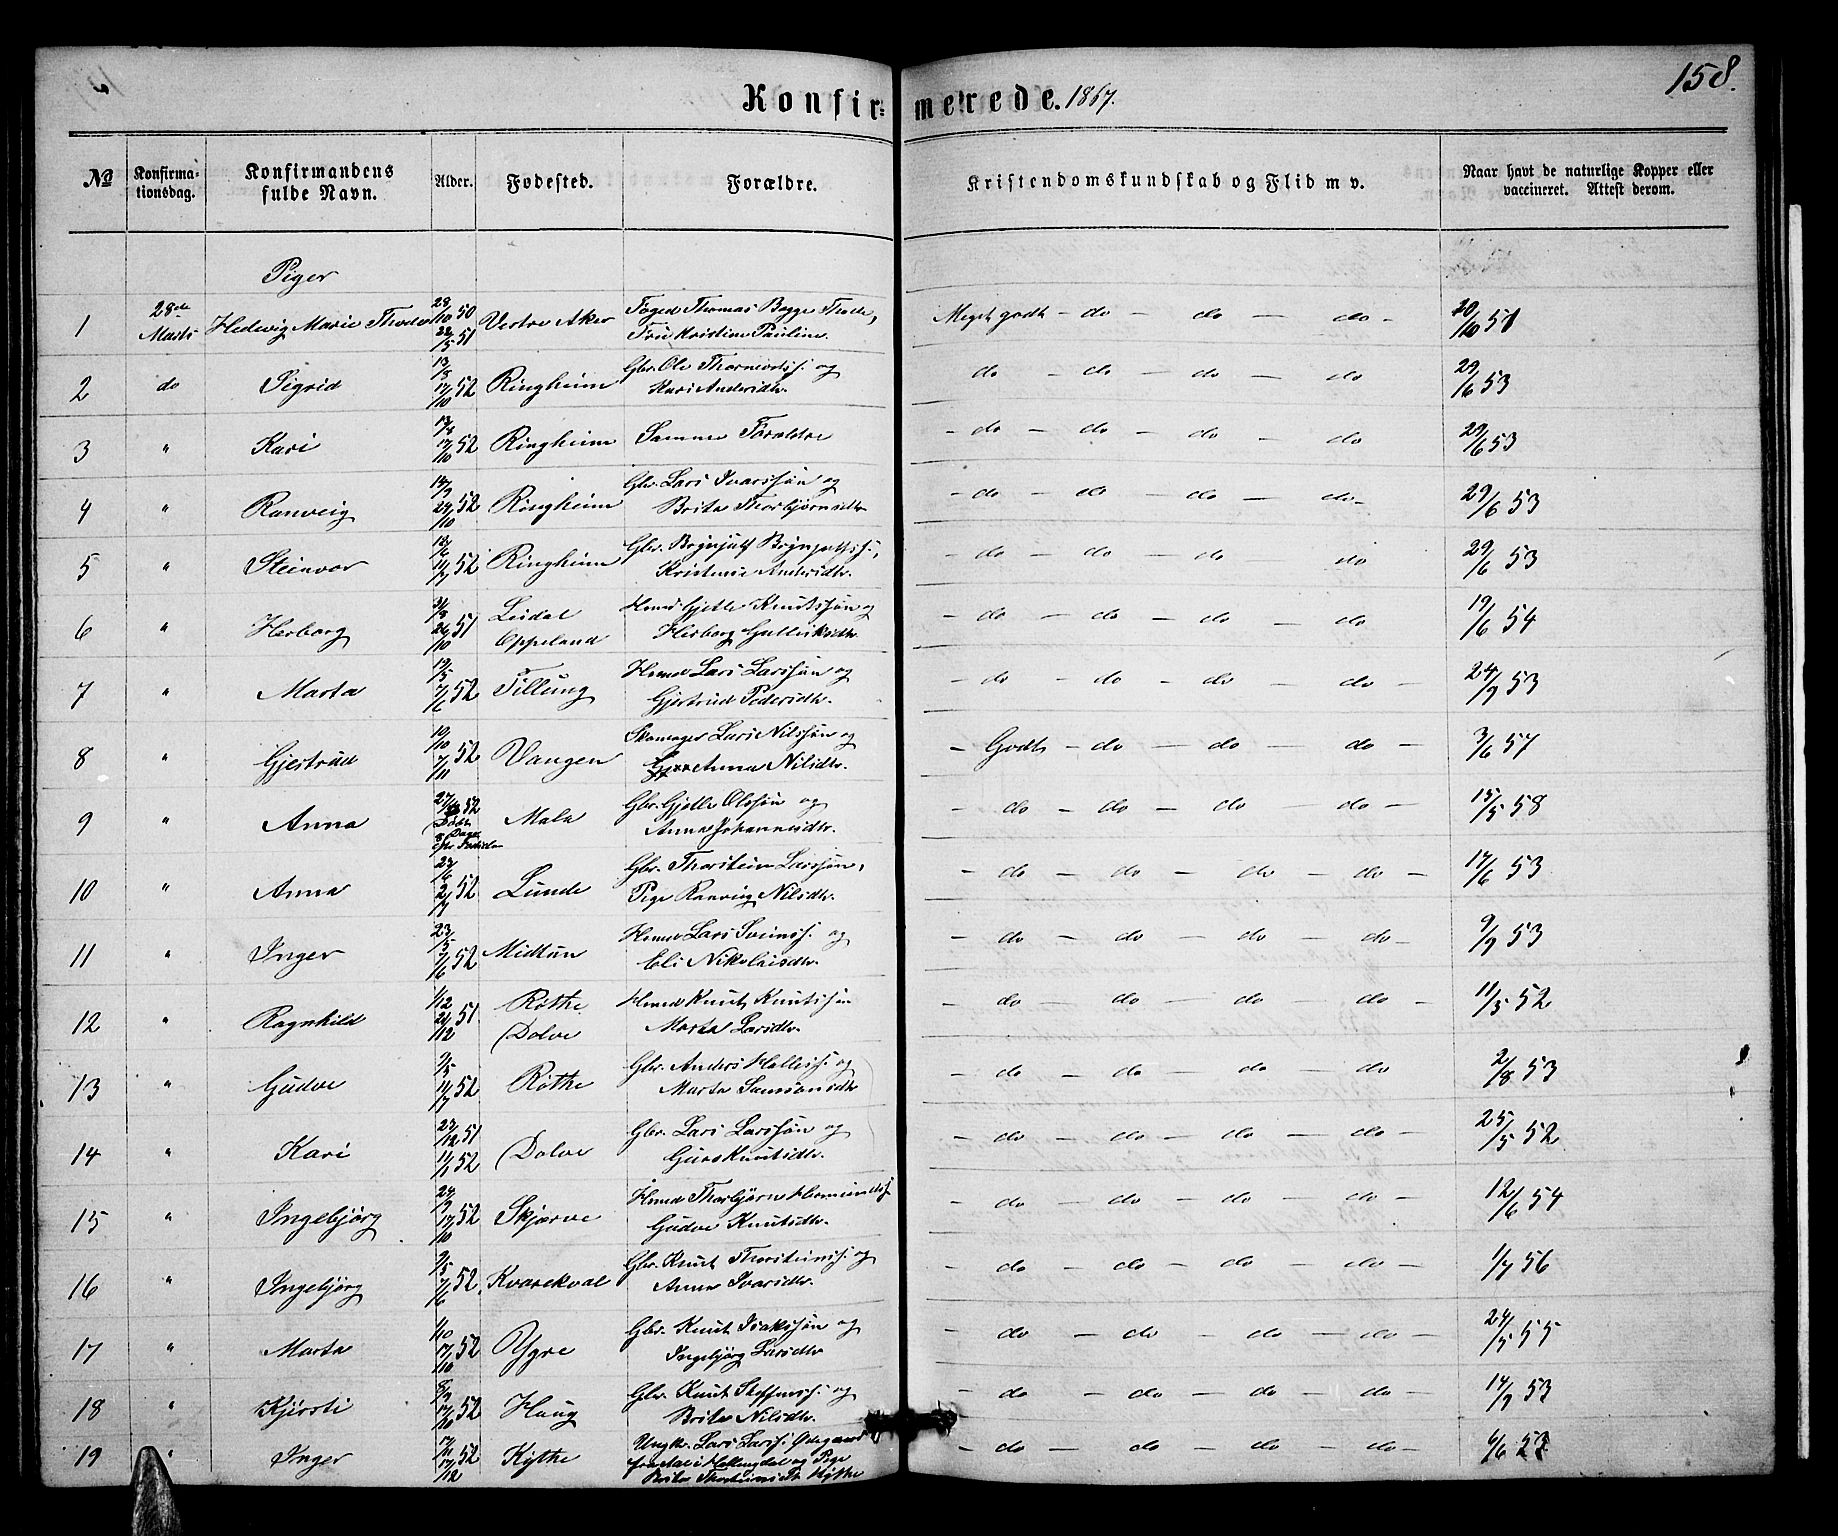 158.
Konfirmerede. 1867.
No
Konfirmationsdag.
Konfirmandens fulde Navn.
Alder.
Fødested.
Forældre.
Kristendomskundskab og Flid m v.
Naar havt de naturlige Kopper eller vaccineret. Attest derom.
Piger
1 28de Marts Hedevig Marie 28/10 50 22/5 51 Vestre Aker Foged Thomas Bagge Fru Kristiane Pauline. Meget godt - do - do - do - 20/10 51
2 do Sigrid 52 Ringheim Gbr. Ole og Kari Andersdtr. do - do - do - do 29/6 53
3 " Kari 52 Ringheim Samme Forældre - do - do - do - do 29/6 53
4 " Ranveig 52 Ringheim Gbr. Lars Ivarssøn og Brita Thorbjørnsdtr. - do - do - do - do - 29/6 53
5 " Steinvor 52 Ringheim Gbr. Brynjulf Kristense Andersdtr. - do - do - do - do 29/6 53
6 " Herborg 51 Oppeland Hmd Gjetle Knutssøn og Herborg Gulleiksdtr. - do - do - do - do 19/6 54
7 " Marta 19/5 52 Tillung Hmd Lars Larssøn og Gjertrud Pedersdtr. - do - do - do - do - 24/9 53
8 " Gjertrud 19/10 7/11 52 Vangen Skomager Lars Nilssøn og Anna Nilsdtr. - Godt - do - do - do - 3/6 57
9 " Anna 52 Mala Gbr. Gjetle Olssøn og Anna Johannesdtr. - do - do - do - do - 15/5 58
10 " Anna 27/6 2/7 52 Lunde Gbr. Thorstein Larssøn, Pige Ranveig Nilsdtr. - do - do - do - do - 17/6 53
11 " Inger 23/5 7/6 52 Midtun Hmd Lars Sveinss. og Eli Nikolaisdtr. - do - do - do - do - 9/9 53
12 " Ragnhild 1/12 21/12 51 Røthe Dolve Hmd Knut Knutssøn Marta Larsdtr. - do - do - do - do 11/5 52
13 " Gudve 9/5 11/7 52 Røthe Gbr. Anders og Marta Samsonsdtr - do - do - do - do 2/8 53
14 " Kari 23/12 51 11/1 52 Dolve Gbr. Lars Larssøn og Guro Knutsdtr. - do - do - do - do - 25/5 52
15 " Ingebjørg 24/9 17/10 52 Skjerve Hmd Thorbjørn Gudve Knutsdtr. - do - do - do - do - 12/6 54
16 " Ingebjørg 9/5 7/6 52 Kvarekval Gbr. Knut Thorsteinss. og Anna Ivarsdtr. - do - do - do - do - 1/7 56
17 " Marta 1/10 17/10 52 Ygre Gbr. Knut Isakssøn og Ingebjørg Larsdtr - do - do - do - do - 24/5 55
18 " Kjersti 52 Haug Gbr. Knut Steffenss. og Brita Nilsdtr. - do - do - do - do - 14/9 53
19 " Inger 52 Kythe Ungk. Lars Larss. og Pige Brita Kythe - do - do - do - do - 6/6 53